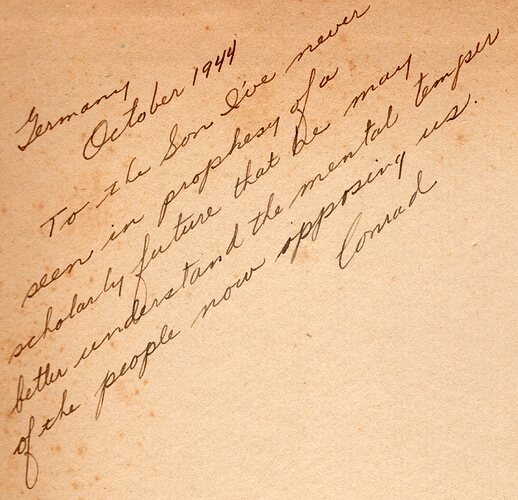 Germany
October 1944
To the Son I've never
seen in prophesy of a
scholarly future that he may
better understand the mental temper
of the people now opposing us.
Conrad